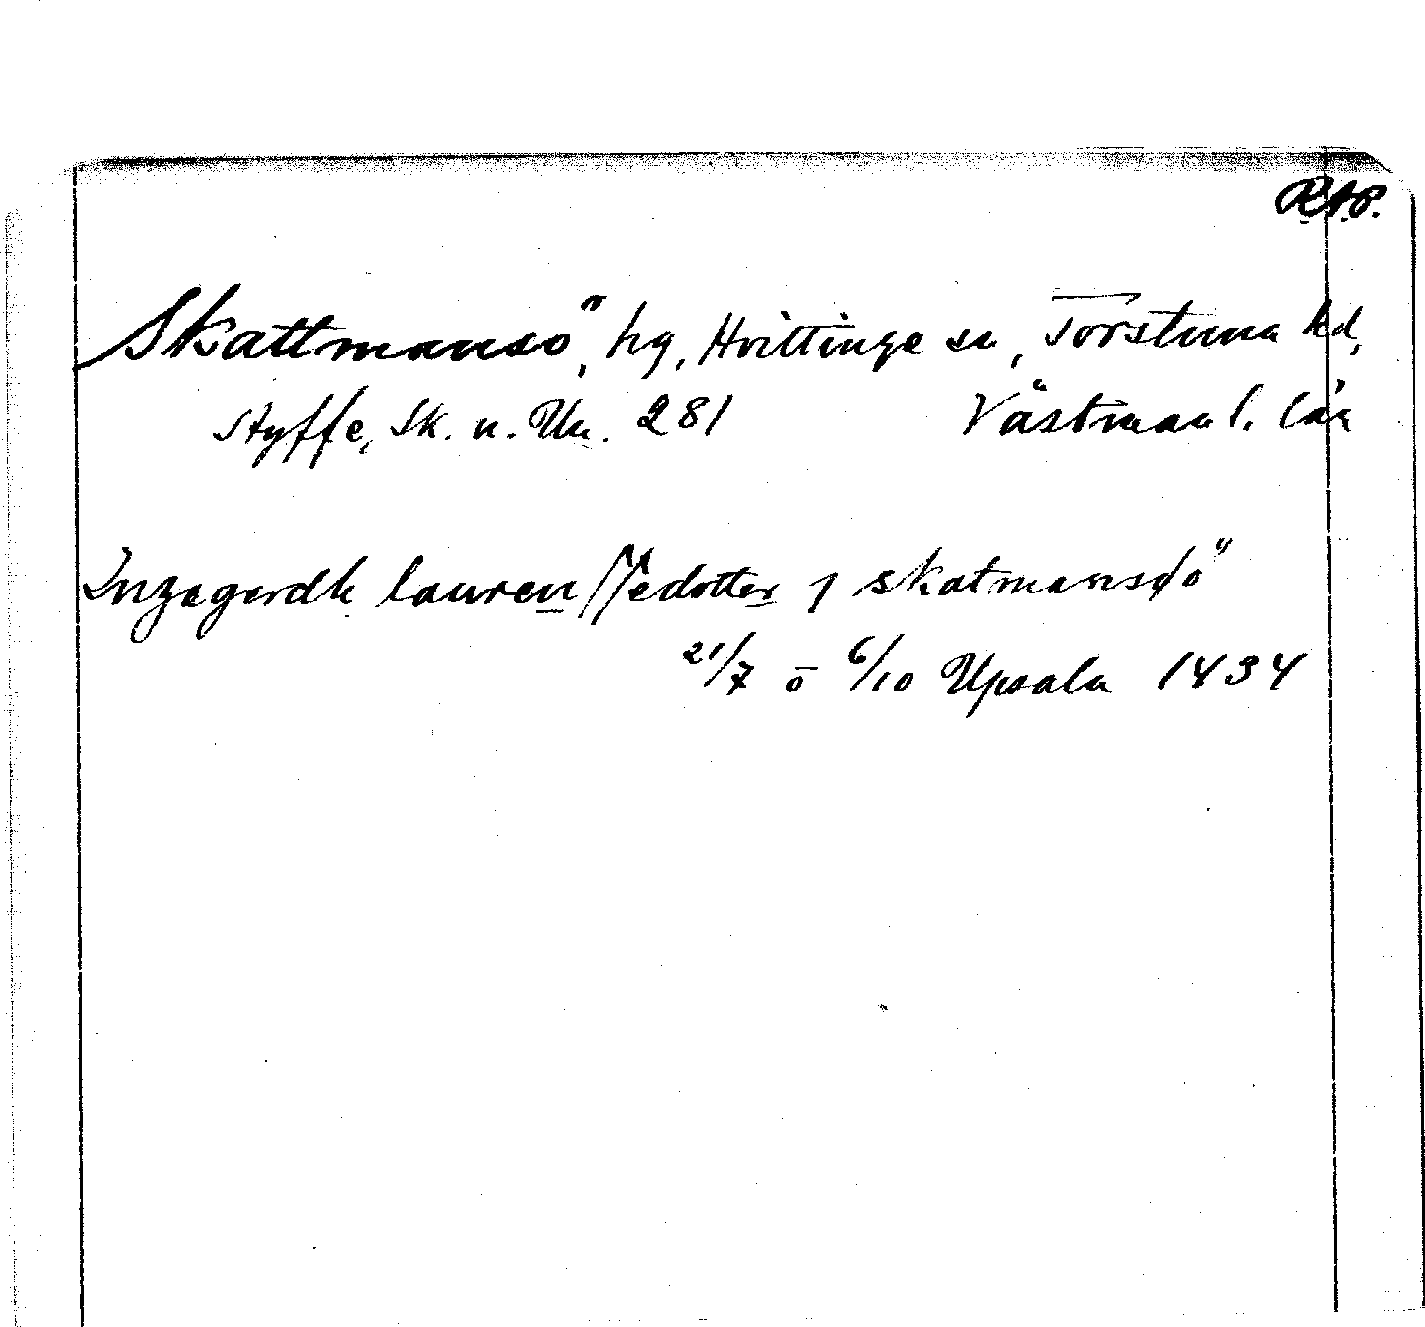 R.A.P.
Skattmansö, hg, Hvittinge sn, Torstuna hd,
Styffe, Sk. u. Un. 281 Västmanl. län
Ingagerdh lauren//edotter j skatmansö
21/7 o 6/10 Upsala 1434